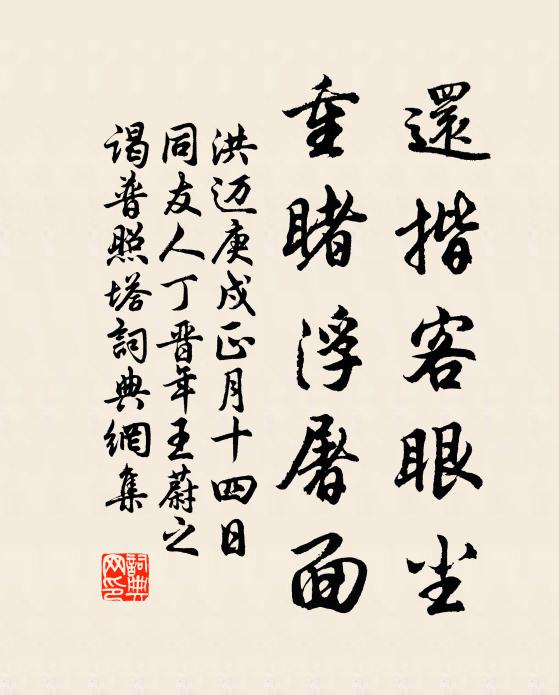 還揩客眼尘
重睹浮屠面
洪迈庚戌正月十四日
同友人丁晋年王蔚之
谒普照塔詞典網集
詞典
网印